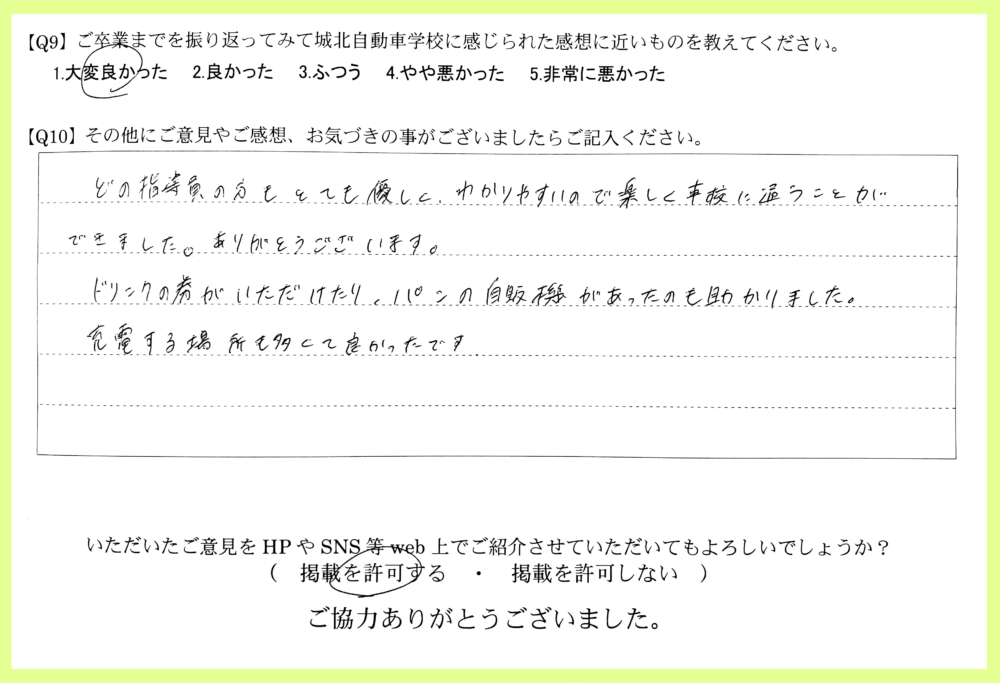 【Q9】ご卒業までを振り返ってみて城北自動車学校に感じられた感想に近いものを教えてください。
1.大変良かった 2.良かった 3.ふつう 4.やや悪かった 5.非常に悪かった
【Q10】その他にご意見やご感想、お気づきの事がございましたらご記入ください。
どの指導員の方もとても優しく、わかりやすいので楽しく車校に通うことが
できました。ありがとうございます。
ドリンクの券がいただけたり、パンの自販機があったのも助かりました。
充電する場所も多くて良かったです
いただいたご意見をHPやSNS等web上でご紹介させていただいてもよろしいでしょうか？
（ 掲載を許可する ・ 掲載を許可しない ）
ご協力ありがとうございました。